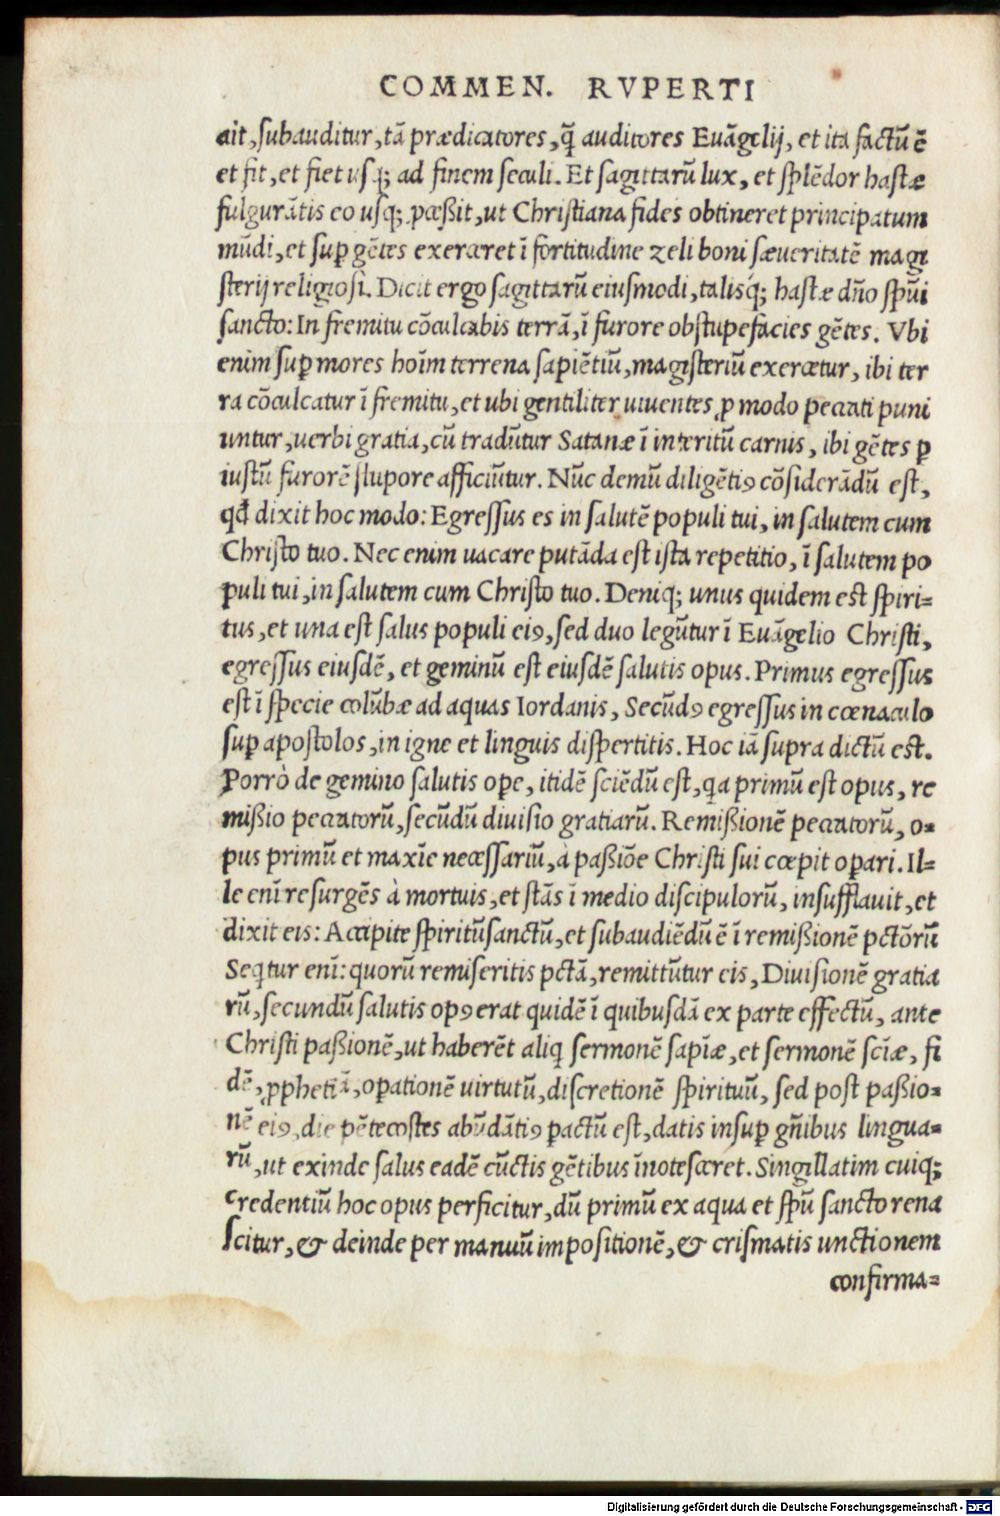 COMMEN. RVPERTI
ait, subauditur, tā prædicatores, q̄ auditores Euāgelij, et ita factū ē
et fit, et fiet usq; ad finem seculi. Et sagittarū lux, et splēdor hastæ
fulgurātis eo usq; pceßit, ut Christiana fides obtineret principatum
mūdi, et sup gētes exerceret ī fortitudine zeli boni sæueritatē magi
sterij religiosi. Dicit ergo sagittarū eiusmodi, talisq́; hastæ dño spūi
sancto: In fremitu cōculcabis terrā, ī furore obstupefacies gētes. Vbi
enim sup mores hoīm terrena sapiētiū, magisteriū exercetur, ibi ter
ra cōculcatur ī fremitu, et ubi gentiliter uiuentes ꝓ modo peccati puni
untur, uerbi gratia, cū tradūtur Satanæ ī interitū carnis, ibi gētes ꝑ
iustū furorē stupore afficiūtur. Nūc demū diligētiꝰ cōsiderādū est,
qđ dixit hoc modo: Egressus es in salutē populi tui, in salutem cum
Christo tuo. Nec enim uacare putāda est ista repetitio, ī salutem po
puli tui, in salutem cum Christo tuo. Deniq; unus quidem est spiri=
tus, et una est salus populi eiꝰ, sed duo legūtur ī Euāgelio Christi,
egressus eiusdē, et geminū est eiusdē salutis opus. Primus egressus
est ī specie colūbæ ad aquas Iordanis, Secūdꝰ egressus in cœnaculo
sup apostolos, in igne et linguis dispertitis. Hoc iā supra dictū est.
Porrò de gemino salutis ope, itidē sciēdū est, qa primū est opus, re
mißio peccatorū, secūdū diuisio gratiarū. Remißionē peccatorū, o=
pus primū et maxīe necessariū, à paßiōe Christi sui cœpit opari. Il=
le enī resurgēs à mortuis, et stās ī medio discipulorū, insufflauit, et
dixit eis: Accipite spiritūsanctū, et subaudiēdū ē ī remißionē pctōrū
Seqtur enī: quorū remiseritis pctā, remittūtur eis, Diuisionē gratia
rū, secundū salutis opꝰ erat quidē ī quibusdā ex parte effectū, ante
Christi paßionē, ut haberēt aliq sermonē sapīæ, et sermonē scīæ, fi
dē, ꝓphetiā, opationē uirtutū, discretionē spirituū, sed post paßio=
nē eiꝰ, die pētecostes abūdātiꝰ pactū est, datis insup gñibus lingua=
rū, ut exinde salus eadē cūctis gētibus īnotesceret. Singillatim cuiq;
credentiū hoc opus perficitur, dū primū ex aqua et spū sancto rena
scitur, & deinde per manuū impositionē, & crismatis unctionem
confirma=
Digitalisierung gefördert durch die Deutsche Forschungsgemeinschaft - DFG